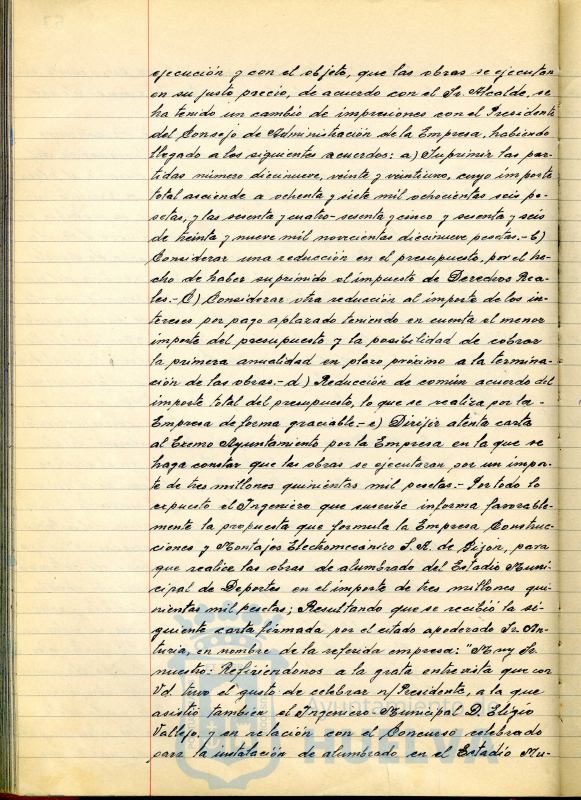 ejecución y con el objeto, que las obras se ejecutan
en su justo precio, de acuerdo con el Sr. Alcalde, se
ha tenido un cambio de impresiones con el Presidente
del Consejo de Administración de la Empresa, habiendo
llegado a los siguientes acuerdos: a) Suprimir las par-
tidas número diecinueve, veinte y veintiuno, cuyo importe
total asciende a ochenta y siete mil ochocientas seis pe-
setas, y las sesenta y cuatro-sesenta y cinco y sesenta y seis
de treinta y nueve mil novecientas diecinueve pesetas.- b)
Considerar una reducción en el presupuesto, por el he-
cho de haber suprimido el impuesto de Derechos Rea-
les.- C) Considerar otra reducción al importe de los in-
tereses por pago aplazado teniendo en cuenta el menor
importe del presupuesto y la posibilidad de cobrar
la primera anualidad en plazo próximo a la termina-
ción de las obras.- d) Reducción de común acuerdo del
importe total del presupuesto, lo que se realiza por la
Empresa de forma graciable.- e) Dirijir atenta carta
al Excmo Ayuntamiento por la Empresa en la que se
haga constar que las obras se ejecutaran por un impor-
te de tres millones quinientas mil pesetas.- Por todo lo
expuesto el Ingeniero que suscribe informa favorable-
mente la propuesta que formula la Empresa Construc-
ciones y Montajes Electromecánico S.A. de Gijón, para
que realice las obras de alumbrado del Estadio Muni-
cipal de Deportes en el importe de tres millones qui-
nientas mil pesetas; Resultando que se recibió la si-
guiente carta firmada por el citado apoderado Sr. An-
turia, en nombre de la referida empresa: "Muy Sr.
nuestro: Refiriéndonos a la grata entrevista que con
Vd. tuvo el gusto de celebrar n/Presidente, a la que
asistio tambien el Ingeniero Municipal D. Eligio
Vallejo, y en relación con el Concurso celebrado
para la instalación de alumbrado en el Estadio Mu-
Ayuntamiento